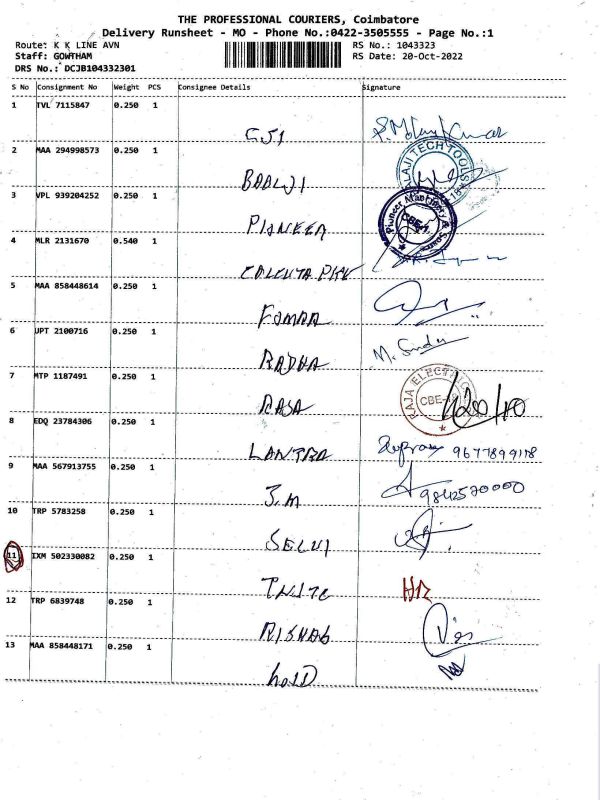 THE PROFESSIONAL COURIERS, Coimbatore
Delivery Runsheet - MO - Phone No.:0422-3505555 - Page No.:1
Route: K K LINE AVN RS No.: 1043323
Staff: GOWTHAM RS Date: 20-Oct-2022
DRS No.: DCJB104332301
S No Consignment No Weight PCS Consignee Details Signature
1 TVL 7115847 0.250 1
2 MAA 294998573 0.250 1
BALAJI TECH TOOLS
3 VPL 939204252 0.250 1
PIONEER
Pioneer Machinery &
CBE-1
4 MLR 2131670 0.540 1
5 MAA 858448614 0.250 1
6 UPT 2100716 0.250 1
RADHA
M. Sindu
7 MTP 1187491 0.250 1
RAJA
RAJA ELECTRIC
CBE-
8 EDQ 23784306 0.250 1
9677899178
9 MAA 567913755 0.250 1
J.M
9842520000
10 TRP 5783258 0.250 1
SELVI
11 IXM 502330082 0.250 1
12 TRP 6839748 0.250 1
RISHAB
13 MAA 858448171 0.250 1
HOLD